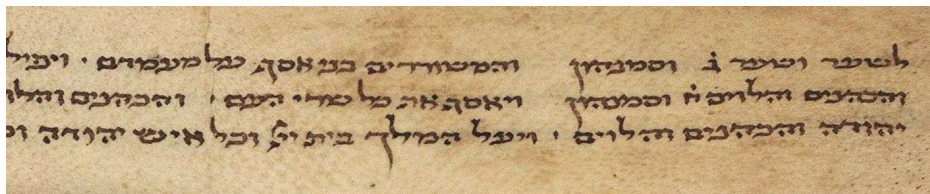 לשער ושער ב̇ וסמנהון והמשוררים בני אסף על מעמדם · ויפיל
והכהנים והלוים ח̇ וסמנהון ויאסף את כל שרי העם · והכהנים והלוי
יהודה והכהנים והלוים · ויעל המלך בית יי וכל איש יהודה